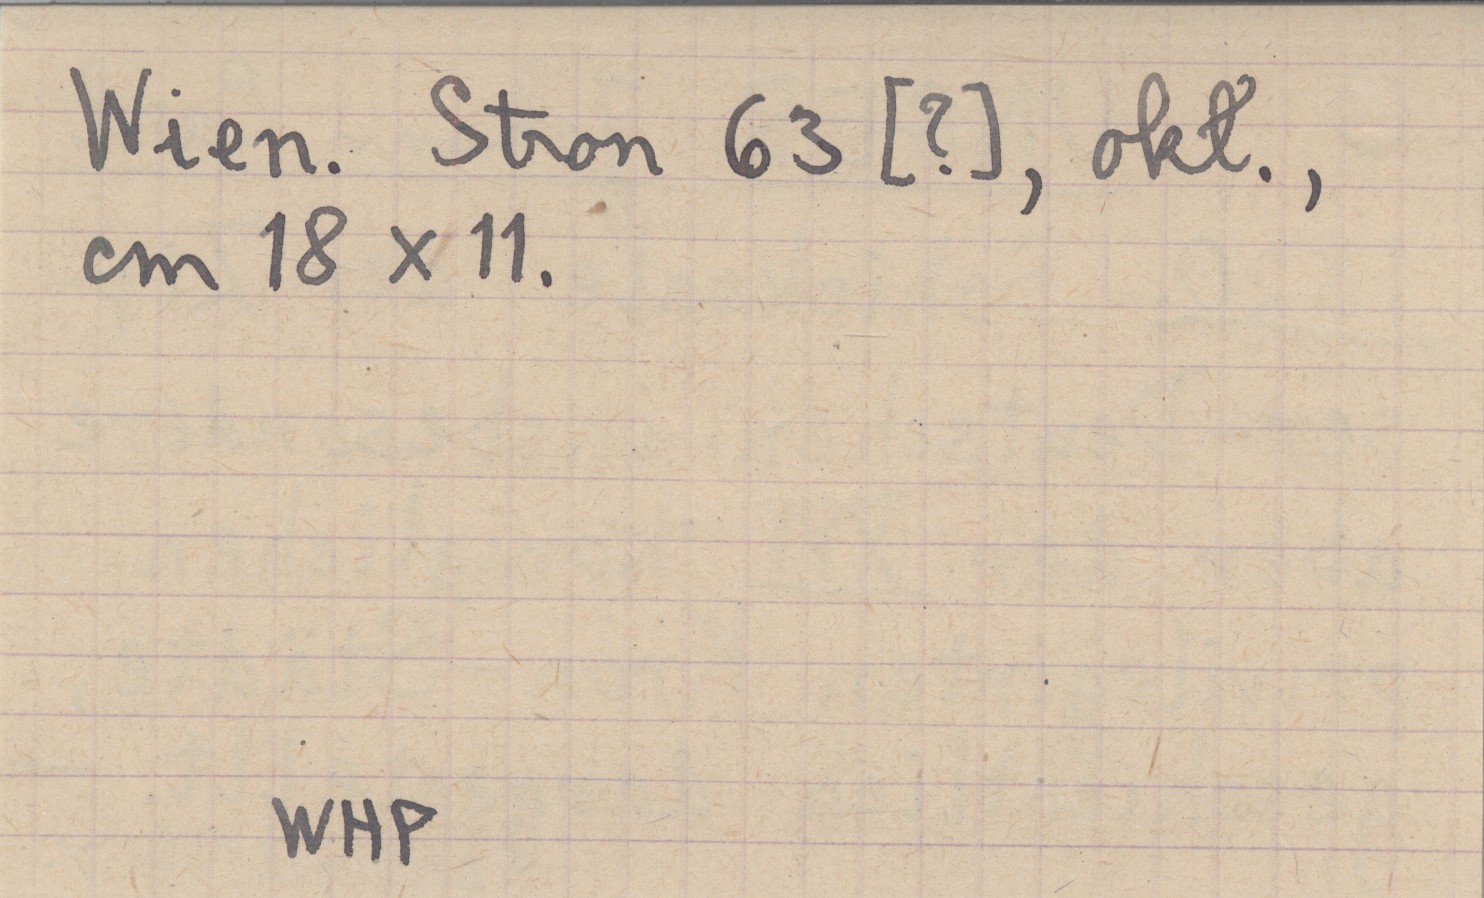 Wien. Stron 63 [?], okł.,
cm 18 x 11.
WHP